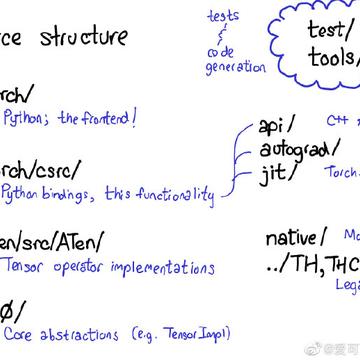 tests
&
code
generation
test/
tools/
rce structure
rch/
Python; the frontend!
api/
C++
autograd/
jit/
Torch
rch/csrc/
Python bindings, this functionality
en/src/ATen/
Tensor operator implementations
native/
../TH, THC
Lega
0/
Core abstractions (e.g. TensorImpl)
@爱可